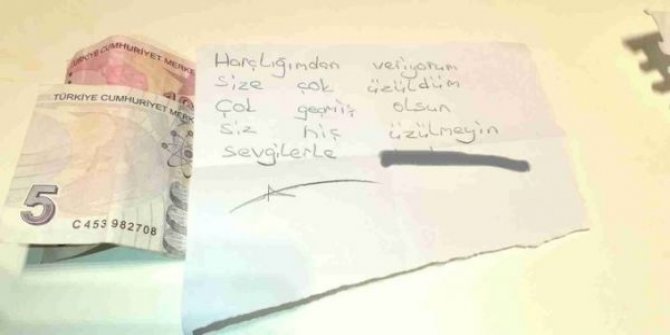 TÜRKİYE CUMHURİYET MERKE
TÜRKİYE CUMHURİYET MERK
5
C453982708
Harçlığımdan veriyorum
Size çok üzüldüm
Çok geçmiş olsun
Siz hiç üzülmeyin
Sevgilerle